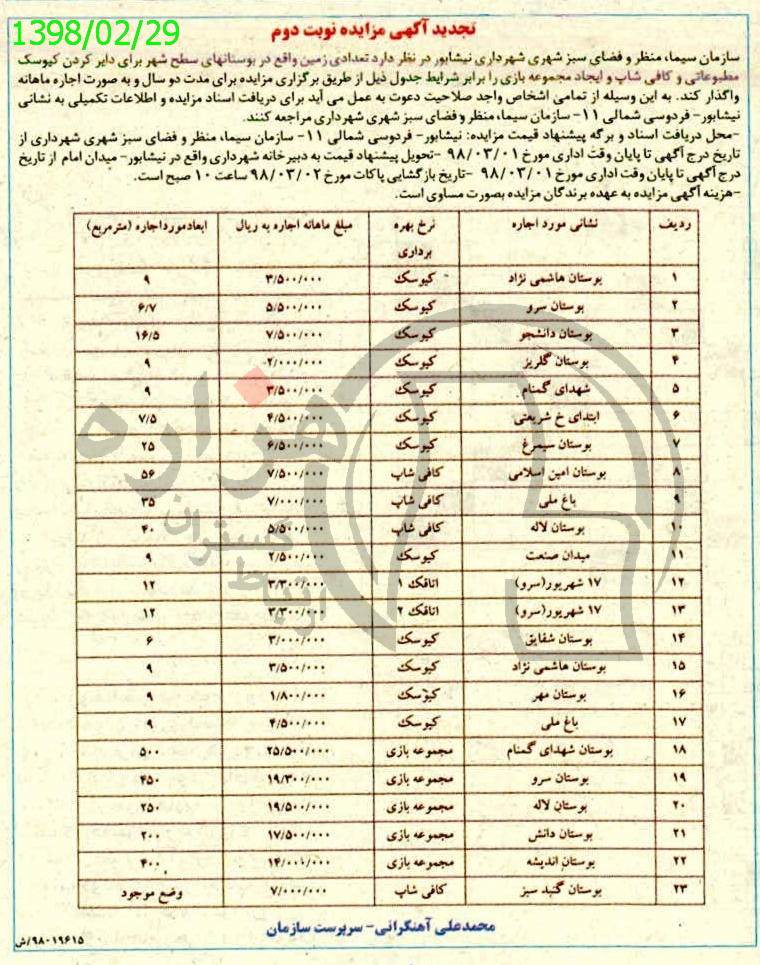 1398/02/29
تجدید آگهی مزایده نوبت دوم
سازمان سیما، منظر و فضای سبز شهری شهرداری نیشابور در نظر دارد تعدادی زمین واقع در بوستانهای سطح شهر برای دایر کردن کیوسک
مطبوعاتی و کافی شاپ و ایجاد مجموعه بازی را برابر شرایط جدول ذیل از طریق برگزاری مزایده برای مدت دو سال و به صورت اجاره ماهانه
واگذار کند. به این وسیله از تمامی اشخاص واجد صلاحیت دعوت به عمل می آید برای دریافت اسناد مزایده و اطلاعات تکمیلی به نشانی
نیشابور- فردوسی شمالی ۱۱- سازمان سیما، منظر و فضای سبز شهری شهرداری مراجعه کنند.
-محل دریافت اسناد و برگه پیشنهاد قیمت مزایده: نیشابور- فردوسی شمالی ۱۱- سازمان سیما، منظر و فضای سبز شهری شهرداری از
تاریخ درج آگهی تا پایان وقت اداری مورخ ۹۸/۰۳/۰۱ -تحویل پیشنهاد قیمت به دبیرخانه شهرداری واقع در نیشابور- میدان امام از تاریخ
درج آگهی تا پایان وقت اداری مورخ ۹۸/۰۳/۰۱ -تاریخ بازگشایی پاکات مورخ ۹۸/۰۳/۰۲ ساعت ۱۰ صبح است.
-هزینه آگهی مزایده به عهده برندگان مزایده بصورت مساوی است.
ردیف نشانی مورد اجاره نرخ بهره برداری مبلغ ماهانه اجاره به ریال ابعادمورداجاره (مترمربع)
۱ بوستان هاشمی نژاد کیوسک ۳/۵۰۰/۰۰۰ ۹
۲ بوستان سرو کیوسک ۵/۵۰۰/۰۰۰ ۶/۷
۳ بوستان دانشجو کیوسک ۷/۵۰۰/۰۰۰ ۱۶/۵
۴ بوستان گلریز کیوسک ۲/۰۰۰/۰۰۰ ۹
۵ شهدای گمنام کیوسک ۳/۵۰۰/۰۰۰ ۹
۶ ابتدای خ شریعتی کیوسک ۴/۵۰۰/۰۰۰ ۷/۵
۷ بوستان سیمرغ کیوسک ۶/۵۰۰/۰۰۰ ۲۵
۸ بوستان امین اسلامی کافی شاپ ۷/۵۰۰/۰۰۰ ۵۶
۹ باغ ملی کافی شاپ ۷/۰۰۰/۰۰۰ ۳۵
۱۰ بوستان لاله کافی شاپ ۵/۵۰۰/۰۰۰ ۴۰
۱۱ میدان صنعت کیوسک ۲/۵۰۰/۰۰۰ ۹
۱۲ ۱۷ شهریور(سرو) اتاقک ۱ ۳/۳۰۰/۰۰۰ ۱۲
۱۳ ۱۷ شهریور(سرو) اتاقک ۲ ۳/۳۰۰/۰۰۰ ۱۲
۱۴ بوستان شقایق کیوسک ۳/۰۰۰/۰۰۰ ۶
۱۵ بوستان هاشمی نژاد کیوسک ۳/۵۰۰/۰۰۰ ۹
۱۶ بوستان مهر کیوسک ۱/۸۰۰/۰۰۰ ۹
۱۷ باغ ملی کیوسک ۴/۵۰۰/۰۰۰ ۹
۱۸ بوستان شهدای گمنام مجموعه بازی ۲۵/۵۰۰/۰۰۰ ۵۰۰
۱۹ بوستان سرو مجموعه بازی ۱۹/۳۰۰/۰۰۰ ۴۵۰
۲۰ بوستان لاله مجموعه بازی ۱۹/۵۰۰/۰۰۰ ۲۵۰
۲۱ بوستان دانش مجموعه بازی ۱۷/۵۰۰/۰۰۰ ۲۰۰
۲۲ بوستان اندیشه مجموعه بازی ۱۴/۰۰۰/۰۰۰ ۴۰۰
۲۳ بوستان گنبد سبز کافی شاپ ۷/۰۰۰/۰۰۰ وضع موجود
محمدعلی آهنگرانی- سرپرست سازمان
۹۸۰۱۹۶۱۵/ش
هزاره
گستران
ارتباط